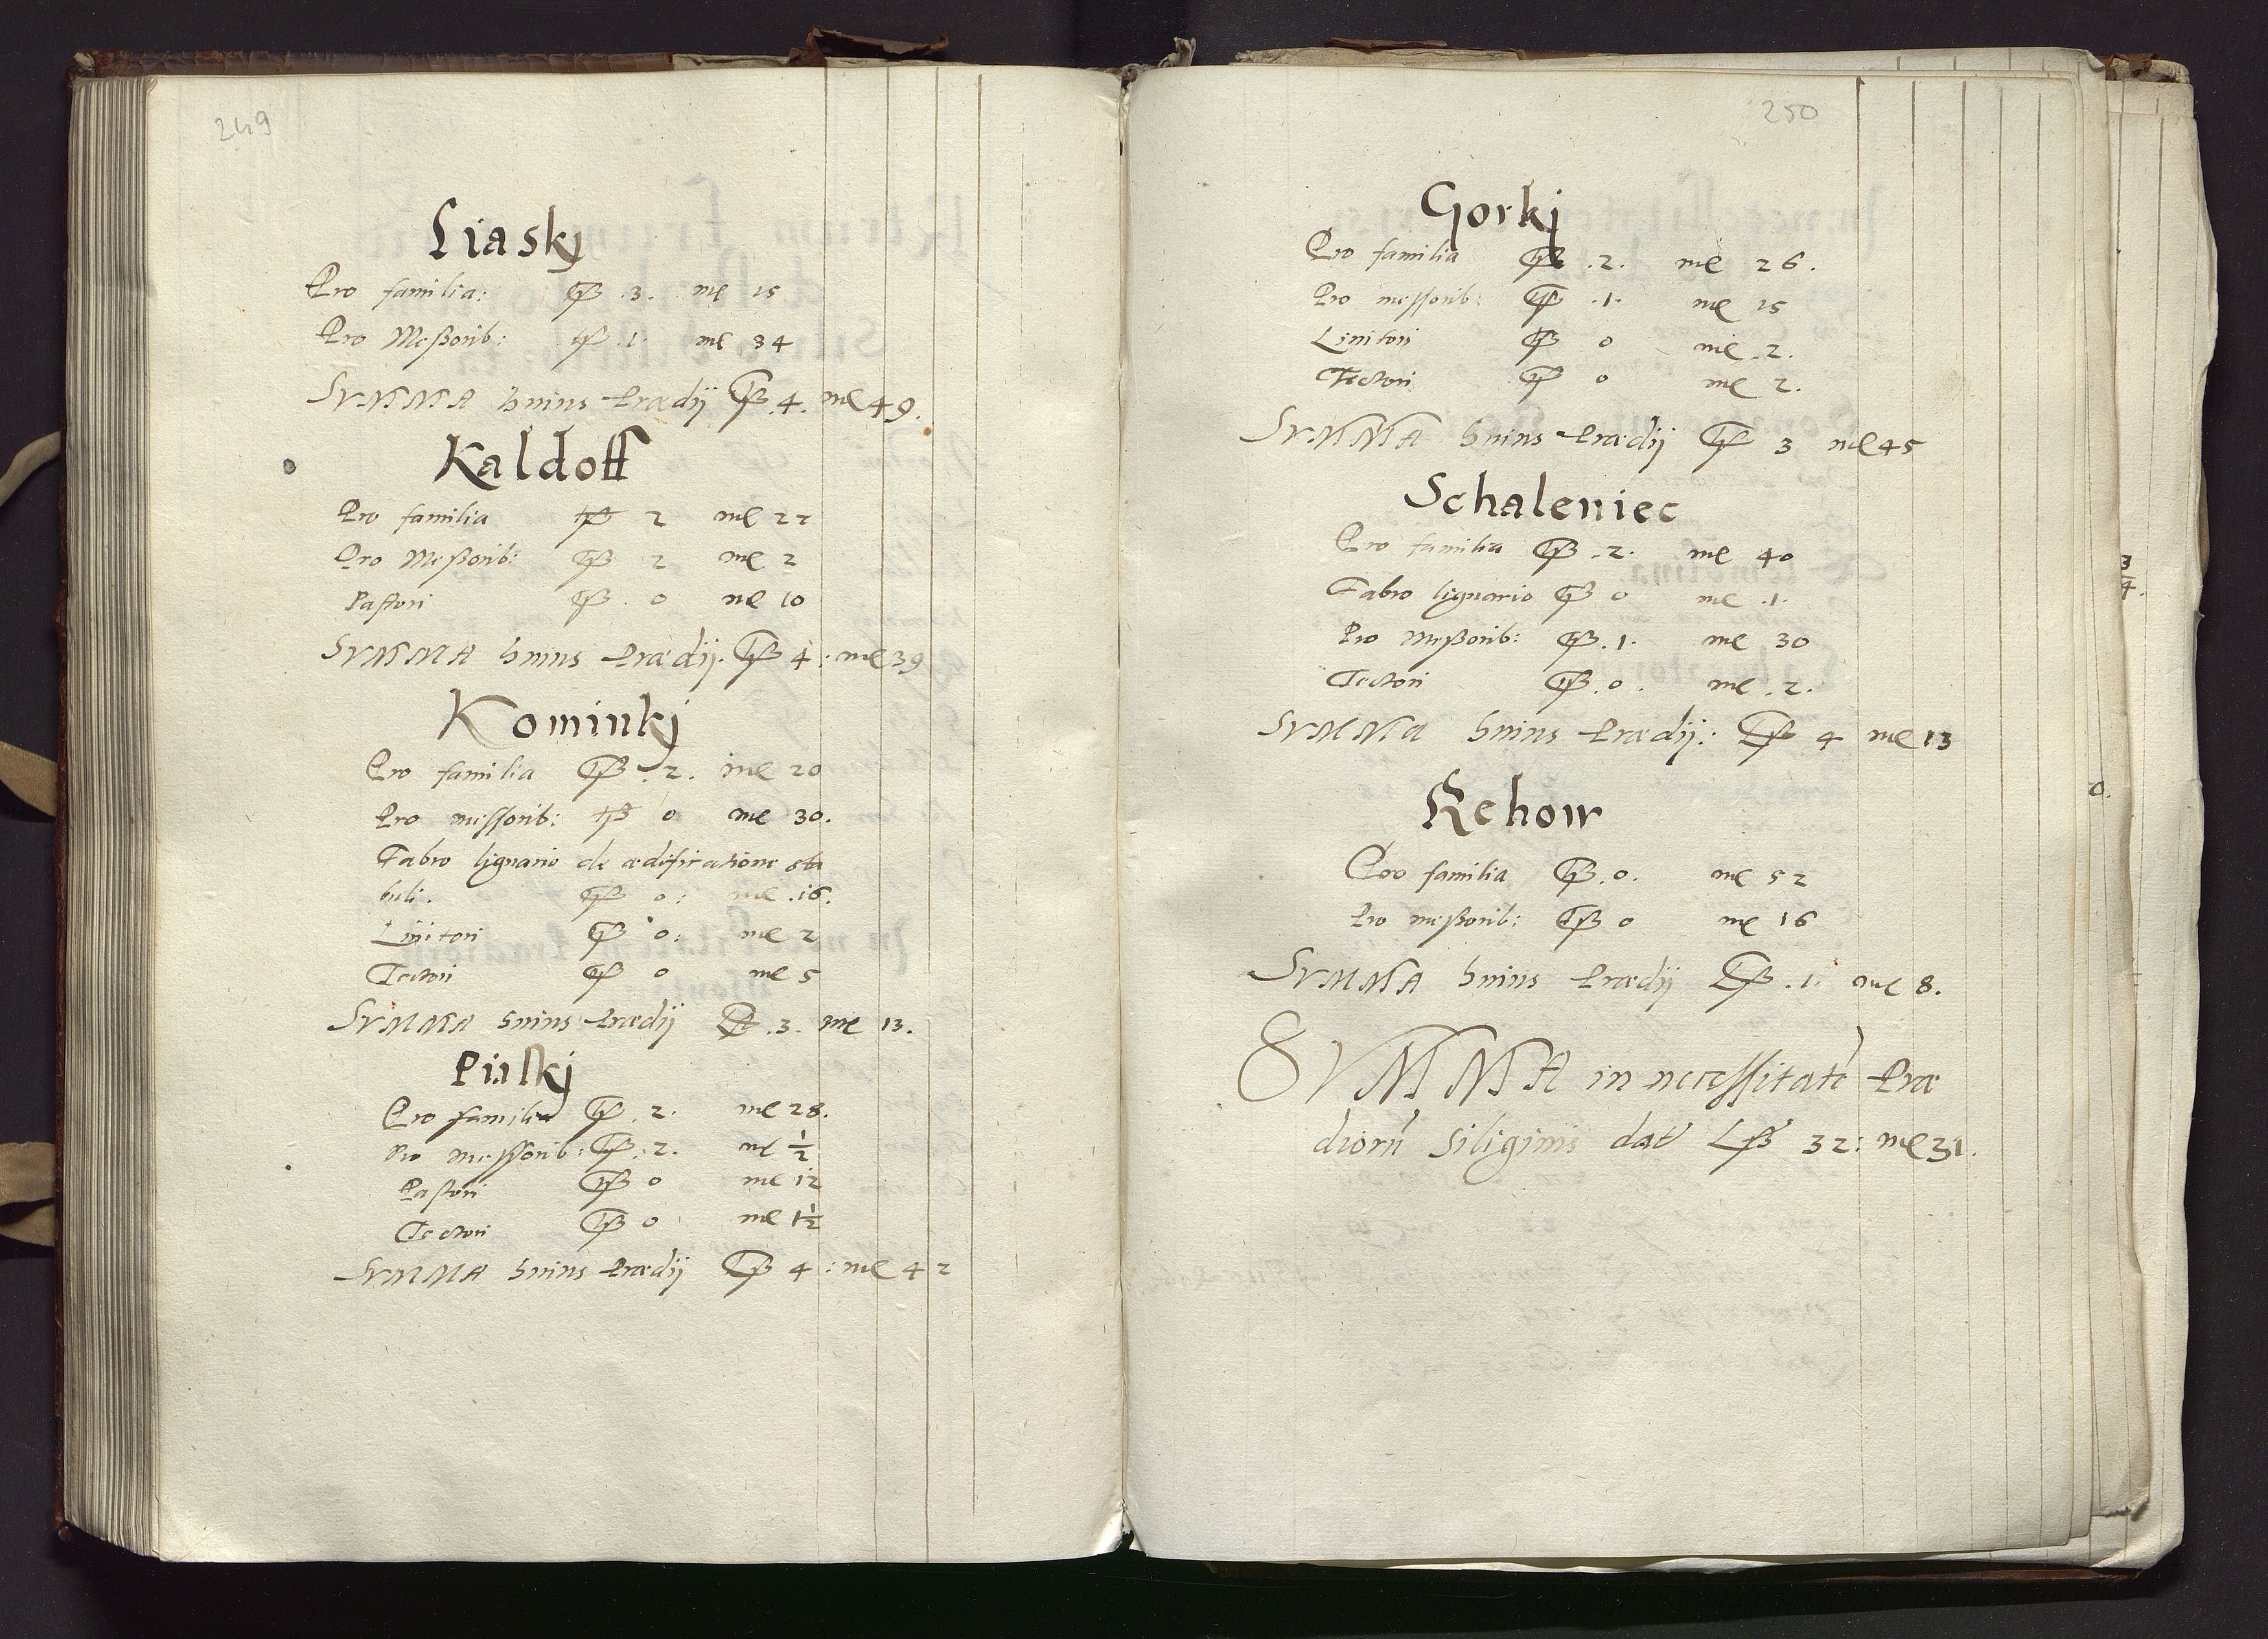 249
Liaskj
Pro familia: Lß .3. me 15
Pro Meßorib: Lß .1. me 34
SVMMA huius prædij Lß .4. me 49.
Kaldoff
Pro familia Lß 2 me 27
Pro Meßorib: Lß 2 me 2
Pastori Lß . 0 me 10
SVMMA huius prædij. Lß 4 : me 39
Kominkj
Pro familia Lß . 2. me 20
Pro messorib: Lß 0 me 30.
Fabro lignario de ædificatione sta
buli. Lß 0 : me .16.
Linitori Lß 0: me 2
Tectori Lß 0 me 5
SVMMA huius prædij Lß .3. me 13.
Piaskj
Pro familia Lß . 2. me 28.
Pro messorib: Lß . 2. me ½
Pastori Lß 0 me 12
Tectori Lß 0 me 1½
SVMMA huius prædij Lß 4 : me 42
250
Gorkj
Pro familia Lß .2. me 26.
Pro messorib: Lß .1. me 15
Linitori Lß 0 me .2.
Tectori Lß 0 me 2.
SVMMA huius prædij Lß 3 me 45
Schaleniec
Pro familia Lß .2. me 40
Fabro lignario Lß 0 me .1.
Pro Meßorib: Lß .1. me 30
Tectori Lß .0. me .2.
SVMMA huius prædij: Lß 4 me 13
Rchow
Pro familia Lß .0. me 52
Pro meßorib: Lß 0 me 16
SVMMA huius prædij Lß .1. me 8.
SVMMA in necessitatē præ
diorū Siliginis dat Lß 32: me 31.
3
4.
0.